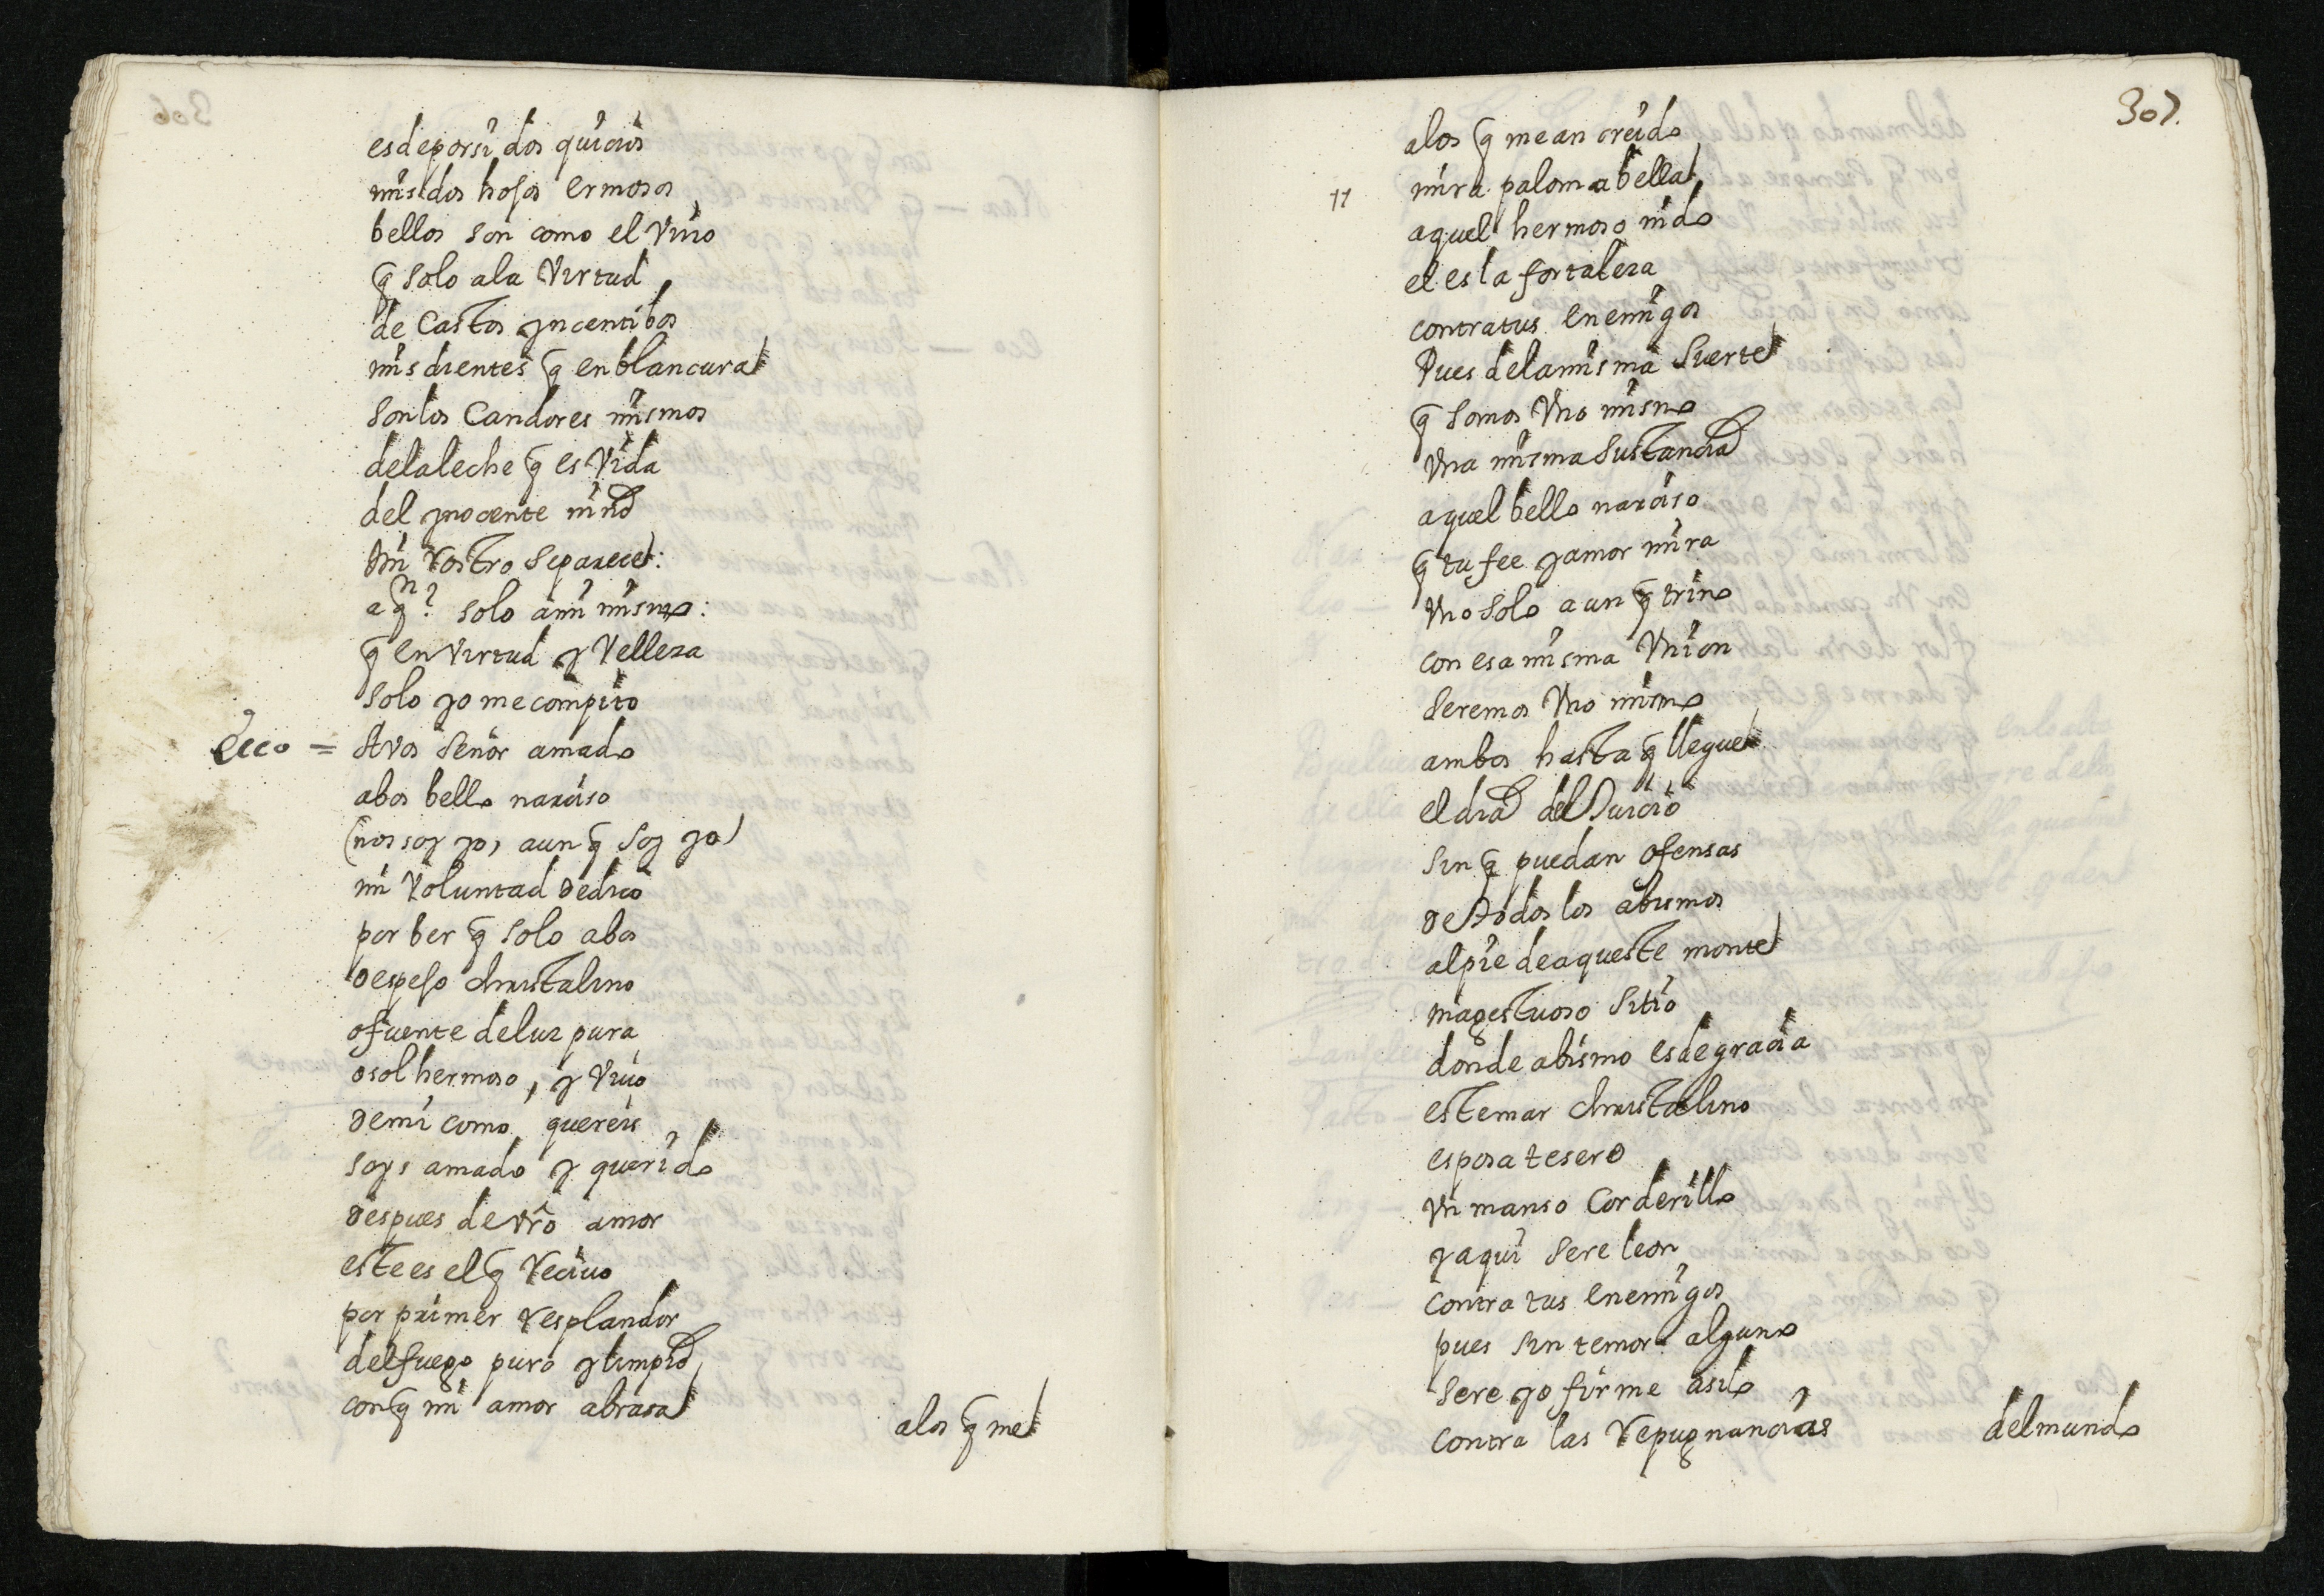 esdeporsi dos quicios
mis dos hojos ermosos
bellos son como el vino
q̃ solo ala virtud
de Castos yncentibos
mis dientes q̃ en blancura
son los Candores mismos
dela leche q̃ es vida
del ynocente niño
Mi rostro separece:
a qn? solo ami mismo:
q̃ en virtud y velleza
solo yo me compito
Ecco = A vos señor amado
abos bello narciso
(nos soy yo, aun q̃ soy yo)
mi voluntad dedico
por ber q̃ solo abos
o espejo christalino
o fuente deluz pura
o sol hermoso, y vivo
demi como quereis
soys amado y querido
despues de vr̃o amor
este es el q̃ recivo
por primer resplandor
del fuego puro y limpio
con q̃ mi amor abrasa
alos q̃ me
307.
alos q̃ me an creido
11 mira paloma bella
aquel hermoso nido
el es la fortaleza
contra tus enemigos
Pues dela misma suerte
q̃ somos vno mismo
vna misma sustancia
aquel bello narciso
q̃ tu fee y amor mira
vno solo aun q̃ trino
con esa misma vnion
seremos vno mismo
ambos hasta q̃ llegue
el dia del Juicio
sin q̃ puedan ofensas
de todos los abismos
al pie de aqueste monte
magestuoso sitio
donde abismo es de gracia
este mar christalino
esposa te sere
vn manso Corderillo
y aqui sere leon
contra tus enemigos
pues sin temor alguno
sere yo firme asilo
contra las repugnancias
del mundo